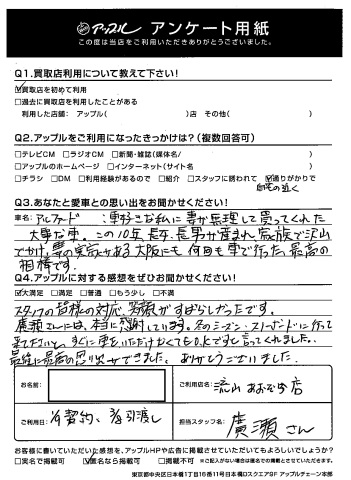 アップル アンケート用紙
この度は当店をご利用いただきありがとうございました。
Q1.買取店利用について教えて下さい!
☑買取店を初めて利用
□過去に買取店を利用したことがある
利用した店舗: アップル( )店 その他( )
Q2.アップルをご利用になったきっかけは?(複数回答可)
□テレビCM □ラジオCM □新聞・雑誌(媒体名/ )
□アップルのホームページ □インターネット(サイト名 )
□チラシ □DM □利用経験があるので □紹介 □スタッフに誘われて ☑通りがかりで
自宅の近く
Q3.あなたと愛車との思い出をお聞かせください!
車名: アルファード : 車好きな私に妻が無理して買ってくれた
大事な車。この10年、長女、長男が産まれ、家族で沢山
でかけ、妻の実家がある大阪にも何回も車で行った、最高の
相棒です。
Q4.アップルに対する感想をぜひお聞かせください!
☑大満足 □満足 □普通 □もう少し □不満
スタッフの皆様の対応、笑顔がすばらしかったです。
廣瀬さんには、本当に感謝しています。冬のシーズン、スノーボードに行って
来て下さいと、すぐに車をいただけなくてもO.K.ですと言ってくれました。
最後に最高の思い出ができました。ありがとうございました。
お名前:
ご利用店名: 流山おおたかの森店
ご利用日: 契約、 引渡し
担当スタッフ名: 廣瀬さん
お客様に書いていただいた感想を、アップルHPや広告に掲載させていただいてもよろしいでしょうか?
□実名で掲載可 ☑匿名なら掲載可 □掲載不可 ※ご記入がない場合は匿名での掲載とさせていただきます。
東京都中央区日本橋1丁目16番11号日本橋Dスクエア9F アップルチェーン本部